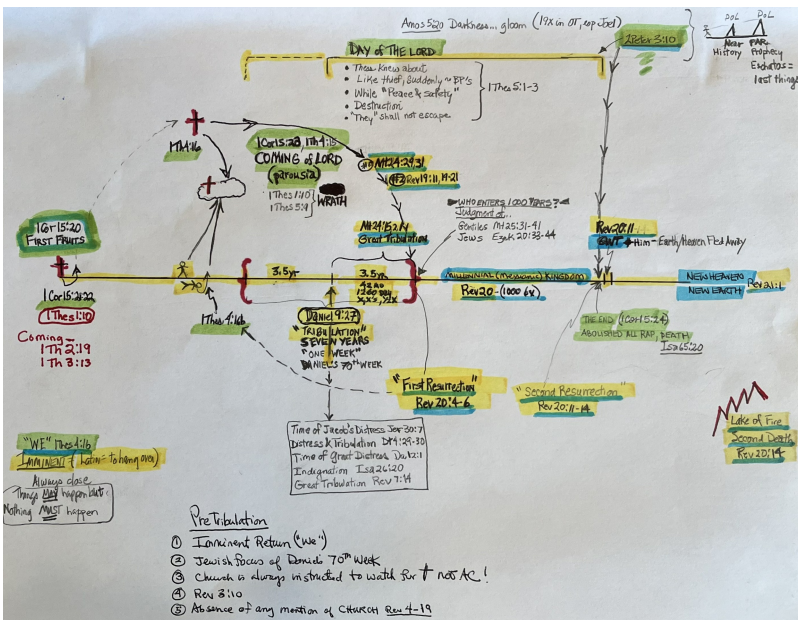 Amos 5:20 Darkness... gloom (19x in OT, esp Joel)
2Peter 3:10
DOL
DOL
Near
History
FAR
Prophecy
Eschatos =
last things
DAY of THE LORD
• Thess Knew about
• Like thief, suddenly ~ BP's
• While "Peace & safety"
• Destruction
• "They" shall not escape
1Thes 5:1-3
1Th 4:16
1Cor 15:23, 1Th 4:15
COMING of LORD
(parousia)
1Thes 1:10
1Thes 5:9
WRATH
Mt 24:29,31
#2 Rev 19:11, 19-21
WHO ENTERS 1000 YEARS?
Judgment of...
Gentiles Mt 25:31-41
Jews Ezek 20:33-44
1Cor 15:20
FIRST FRUITS
Mt 24:15,21
Great Tribulation
Rev 20:11
GWT → Him - Earth/Heaven Fled Away
3.5 yr
3.5 yr
42 mo
1260 DAY
MILLENNIAL (Messianic) KINGDOM
Rev 20 - (1000 6x)
NEW HEAVEN
NEW EARTH
Rev 21:1
1Cor 15:22
1Thes 1:10
Coming -
1Th 2:19
1Th 3:13
1Thes 4:16b
Daniel 9:27
"TRIBULATION"
SEVEN YEARS
"ONE WEEK"
DANIEL'S 70th WEEK
THE END (1Cor 15:24)
ABOLISHED ALL RAP, DEATH
Isa 65:20
"First Resurrection"
Rev 20:4-6
"Second Resurrection"
Rev 20:11-14
Lake of Fire
Second Death
Rev 20:14
Time of Jacob's Distress Jer 30:7
Distress & Tribulation Dt 4:29-30
Time of Great Distress Da 12:1
Indignation Isa 26:20
Great Tribulation Rev 7:14
"WE" 1Thes 4:16
IMMINENT (Latin = to hang over)
Always close
Things MAY happen but
Nothing MUST happen
PreTribulation
① Imminent Return ("We")
② Jewish focus of Daniel's 70th Week
③ Church is always instructed to watch for † not AC!
④ Rev 3:10
⑤ Absence of any mention of CHURCH Rev 4-19